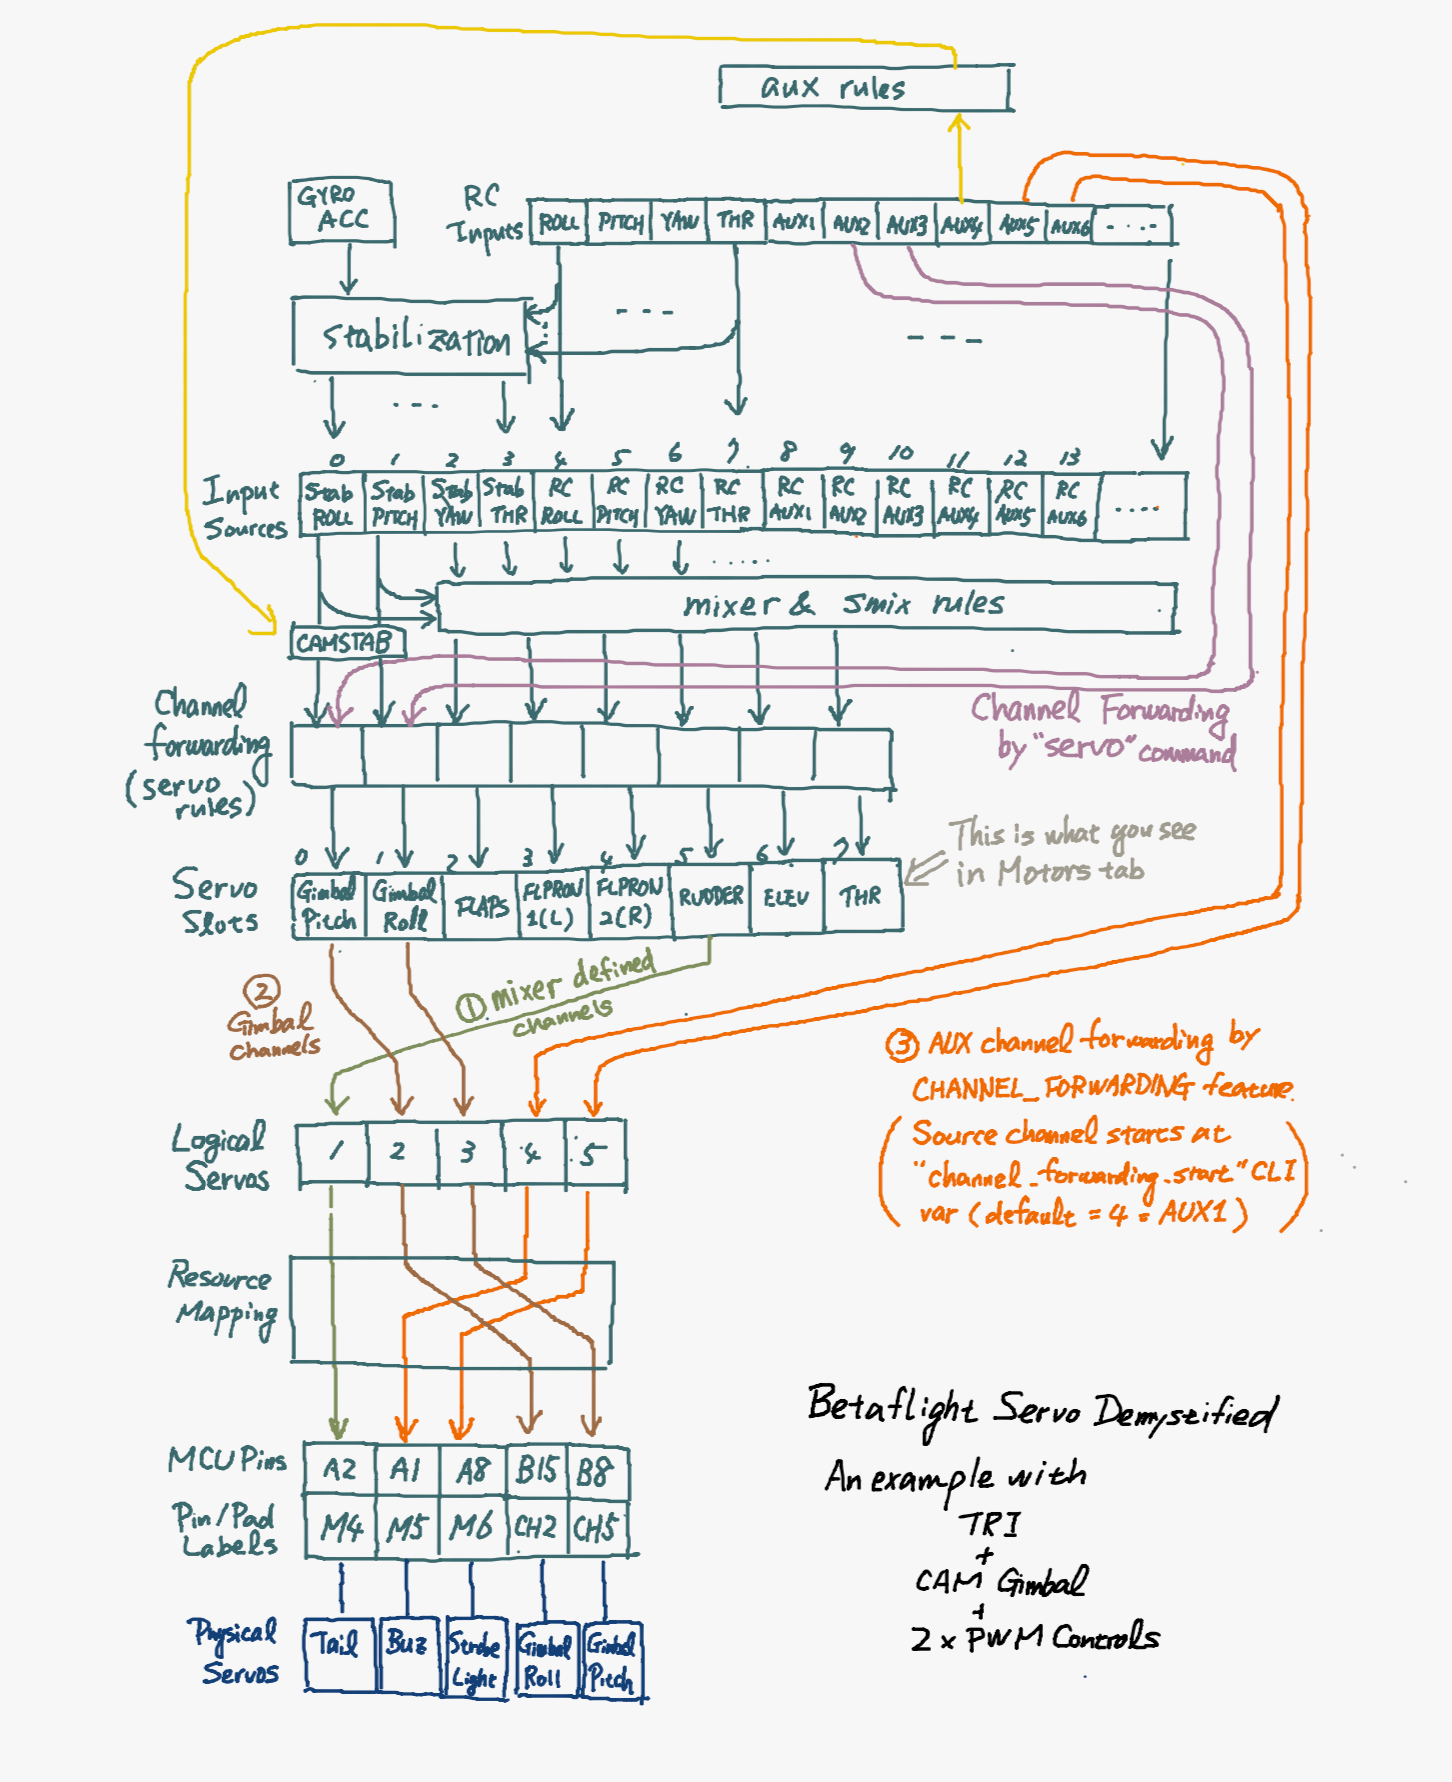 aux rules
GYRO
ACC
RC
Inputs
ROLL PITCH YAW THR AUX1 AUX2 AUX3 AUX4 AUX5 AUX6 ....
Stabilization
0 1 2 3 4 5 6 7 8 9 10 11 12 13
Input
Sources
Stab Stab Stab Stab RC RC RC RC RC RC RC RC RC RC
ROLL PITCH YAW THR ROLL PITCH YAW THR AUX1 AUX2 AUX3 AUX4 AUX5 AUX6 ....
mixer & smix rules
CAMSTAB
Channel
forwarding
(servo
rules)
Channel Forwarding
by "servo" command
This is what you see
in Motors tab
0 1 2 3 4 5 6 7
Servo
Slots
Gimbal Gimbal FLAPS FLPRON FLPRON RUDDER ELEV THR
Pitch Roll 1(L) 2(R)
② Gimbal
channels
① mixer defined
channels
③ AUX channel forwarding by
CHANNEL_FORWARDING feature.
(Source channel starts at
"channel_forwarding_start" CLI
var (default = 4 = AUX1))
Logical
Servos
1 2 3 4 5
Resource
Mapping
MCU Pins
A2 A1 A8 B15 B8
Pin/Pad
Labels
M4 M5 M6 CH2 CH5
Physical
Servos
Tail Buz Strobe Gimbal Gimbal
Light Roll Pitch
Betaflight Servo Demystified
An example with
TRI
+
CAM Gimbal
+
2 x PWM Controls